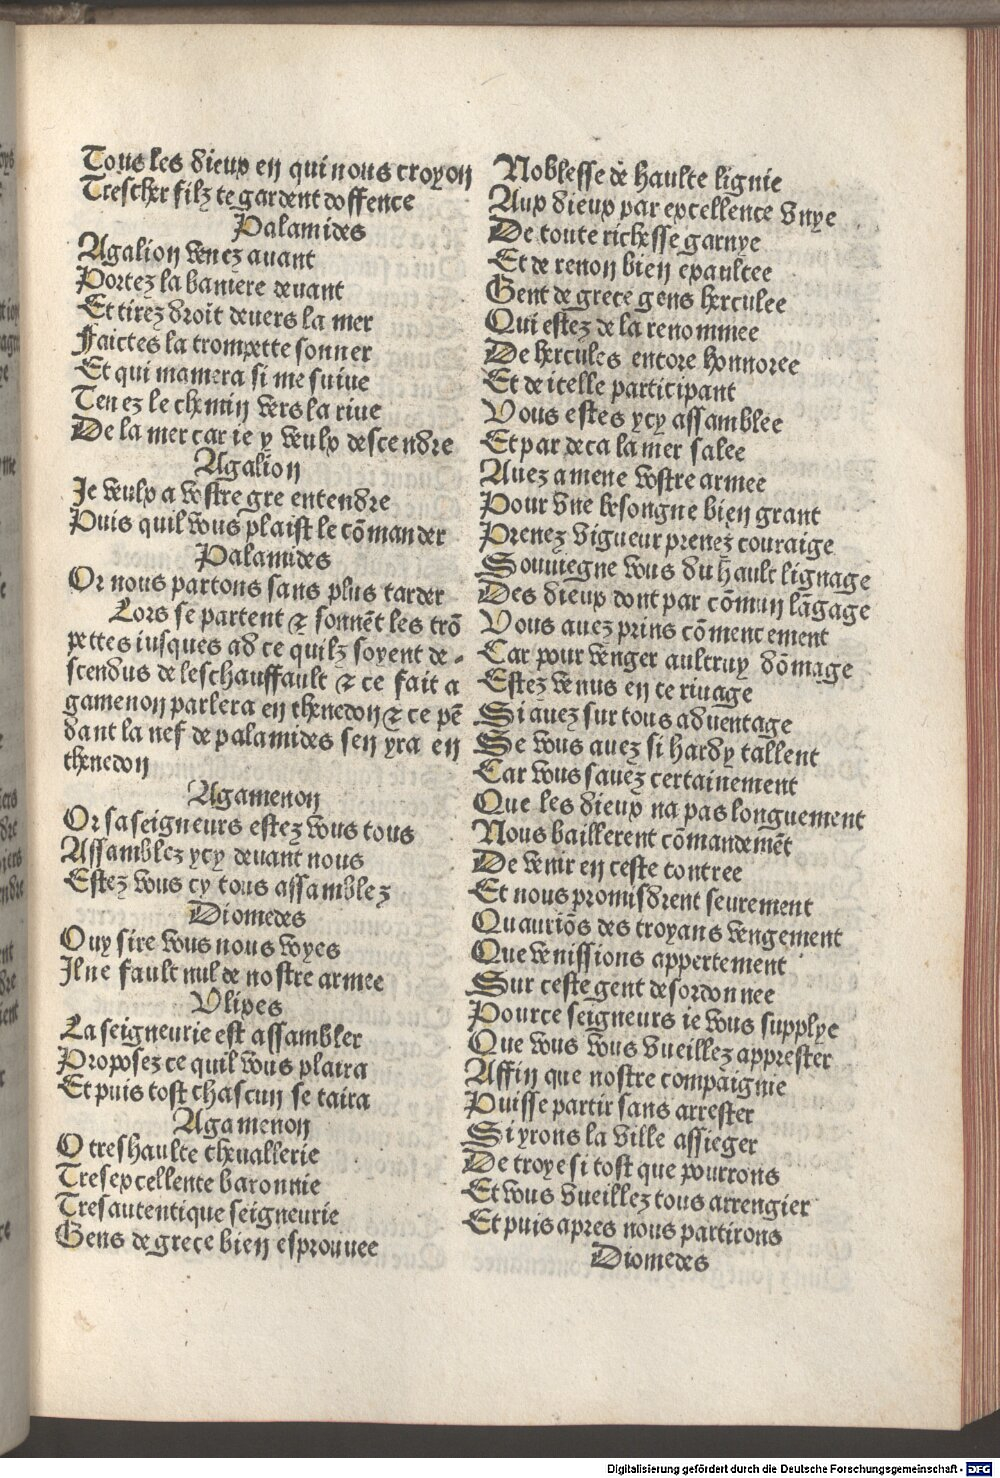 Tous les dieux en qui nous croyon
Trescher filz te gardent doffence
Palamides
Agalion venez auant
Portez la baniere deuant
Et tirez droit deuers la mer
Faictes la trompette sonner
Et qui mamera si me suiue
Tenez le chemin vers la riue
De la mer car ie y veulx descendre
Agalion
Je veulx a vostre gre entendre
Puis quil vous plaist le cõmander
Palamides
Or nous partons sans plus tarder
Lors se partent ⁊ sonnẽt les trõ
pettes iusques ad ce quilz soyent de-
scendus de leschauffault ⁊ ce fait a
gamenon parlera en thenedon ⁊ ce pẽ
dant la nef de palamides sen yra en
thenedon
Agamenon
Or sa seigneurs estez vous tous
Assamblez ycy deuant nous
Estez vous cy tous assamblez
Diomedes
Ouy sire vous nous voyes
Il ne fault nul de nostre armee
Vlixes
La seigneurie est assambler
Proposez ce quil vous plaira
Et puis tost chascun se taira
Agamenon
O treshaulte cheuallerie
Tresexcellente baronnie
Tresautentique seigneurie
Gens de grece bien esprouuee
Noblesse de haulte lignie
Aux dieux par excellence vnye
De toute richesse garnye
Et de renon bien exaultee
Gent de grece gens herculee
Qui estez de la renommee
De hercules encore honnoree
Et de icelle participant
Vous estes ycy assamblee
Et par deca la mer salee
Auez amene vostre armee
Pour vne besongne bien grant
Prenez vigueur prenez couraige
Souuiegne vous du hault lignage
Des dieux dont par cõmun lãgage
Vous auez prins cõmencement
Car pour venger aultruy dõmage
Estez venus en ce riuage
Si auez sur tous aduentage
Se vous auez si hardy tallent
Car vous sauez certainement
Que les dieux na pas longuement
Nous baillerent cõmandemẽt
De venir en ceste contree
Et nous promisdrent seurement
Quauriõs des troyans vengement
Que venissions appertement
Sur ceste gent desordonnee
Pource seigneurs ie vous supplye
Que vous vous vueillez apprester
Affin que nostre compaignie
Puisse partir sans arrester
Si yrons la ville assieger
De troye si tost que pourrons
Et vous vueillez tous arrengier
Et puis apres nous partirons
Diomedes
Digitalisierung gefördert durch die Deutsche Forschungsgemeinschaft - DFG